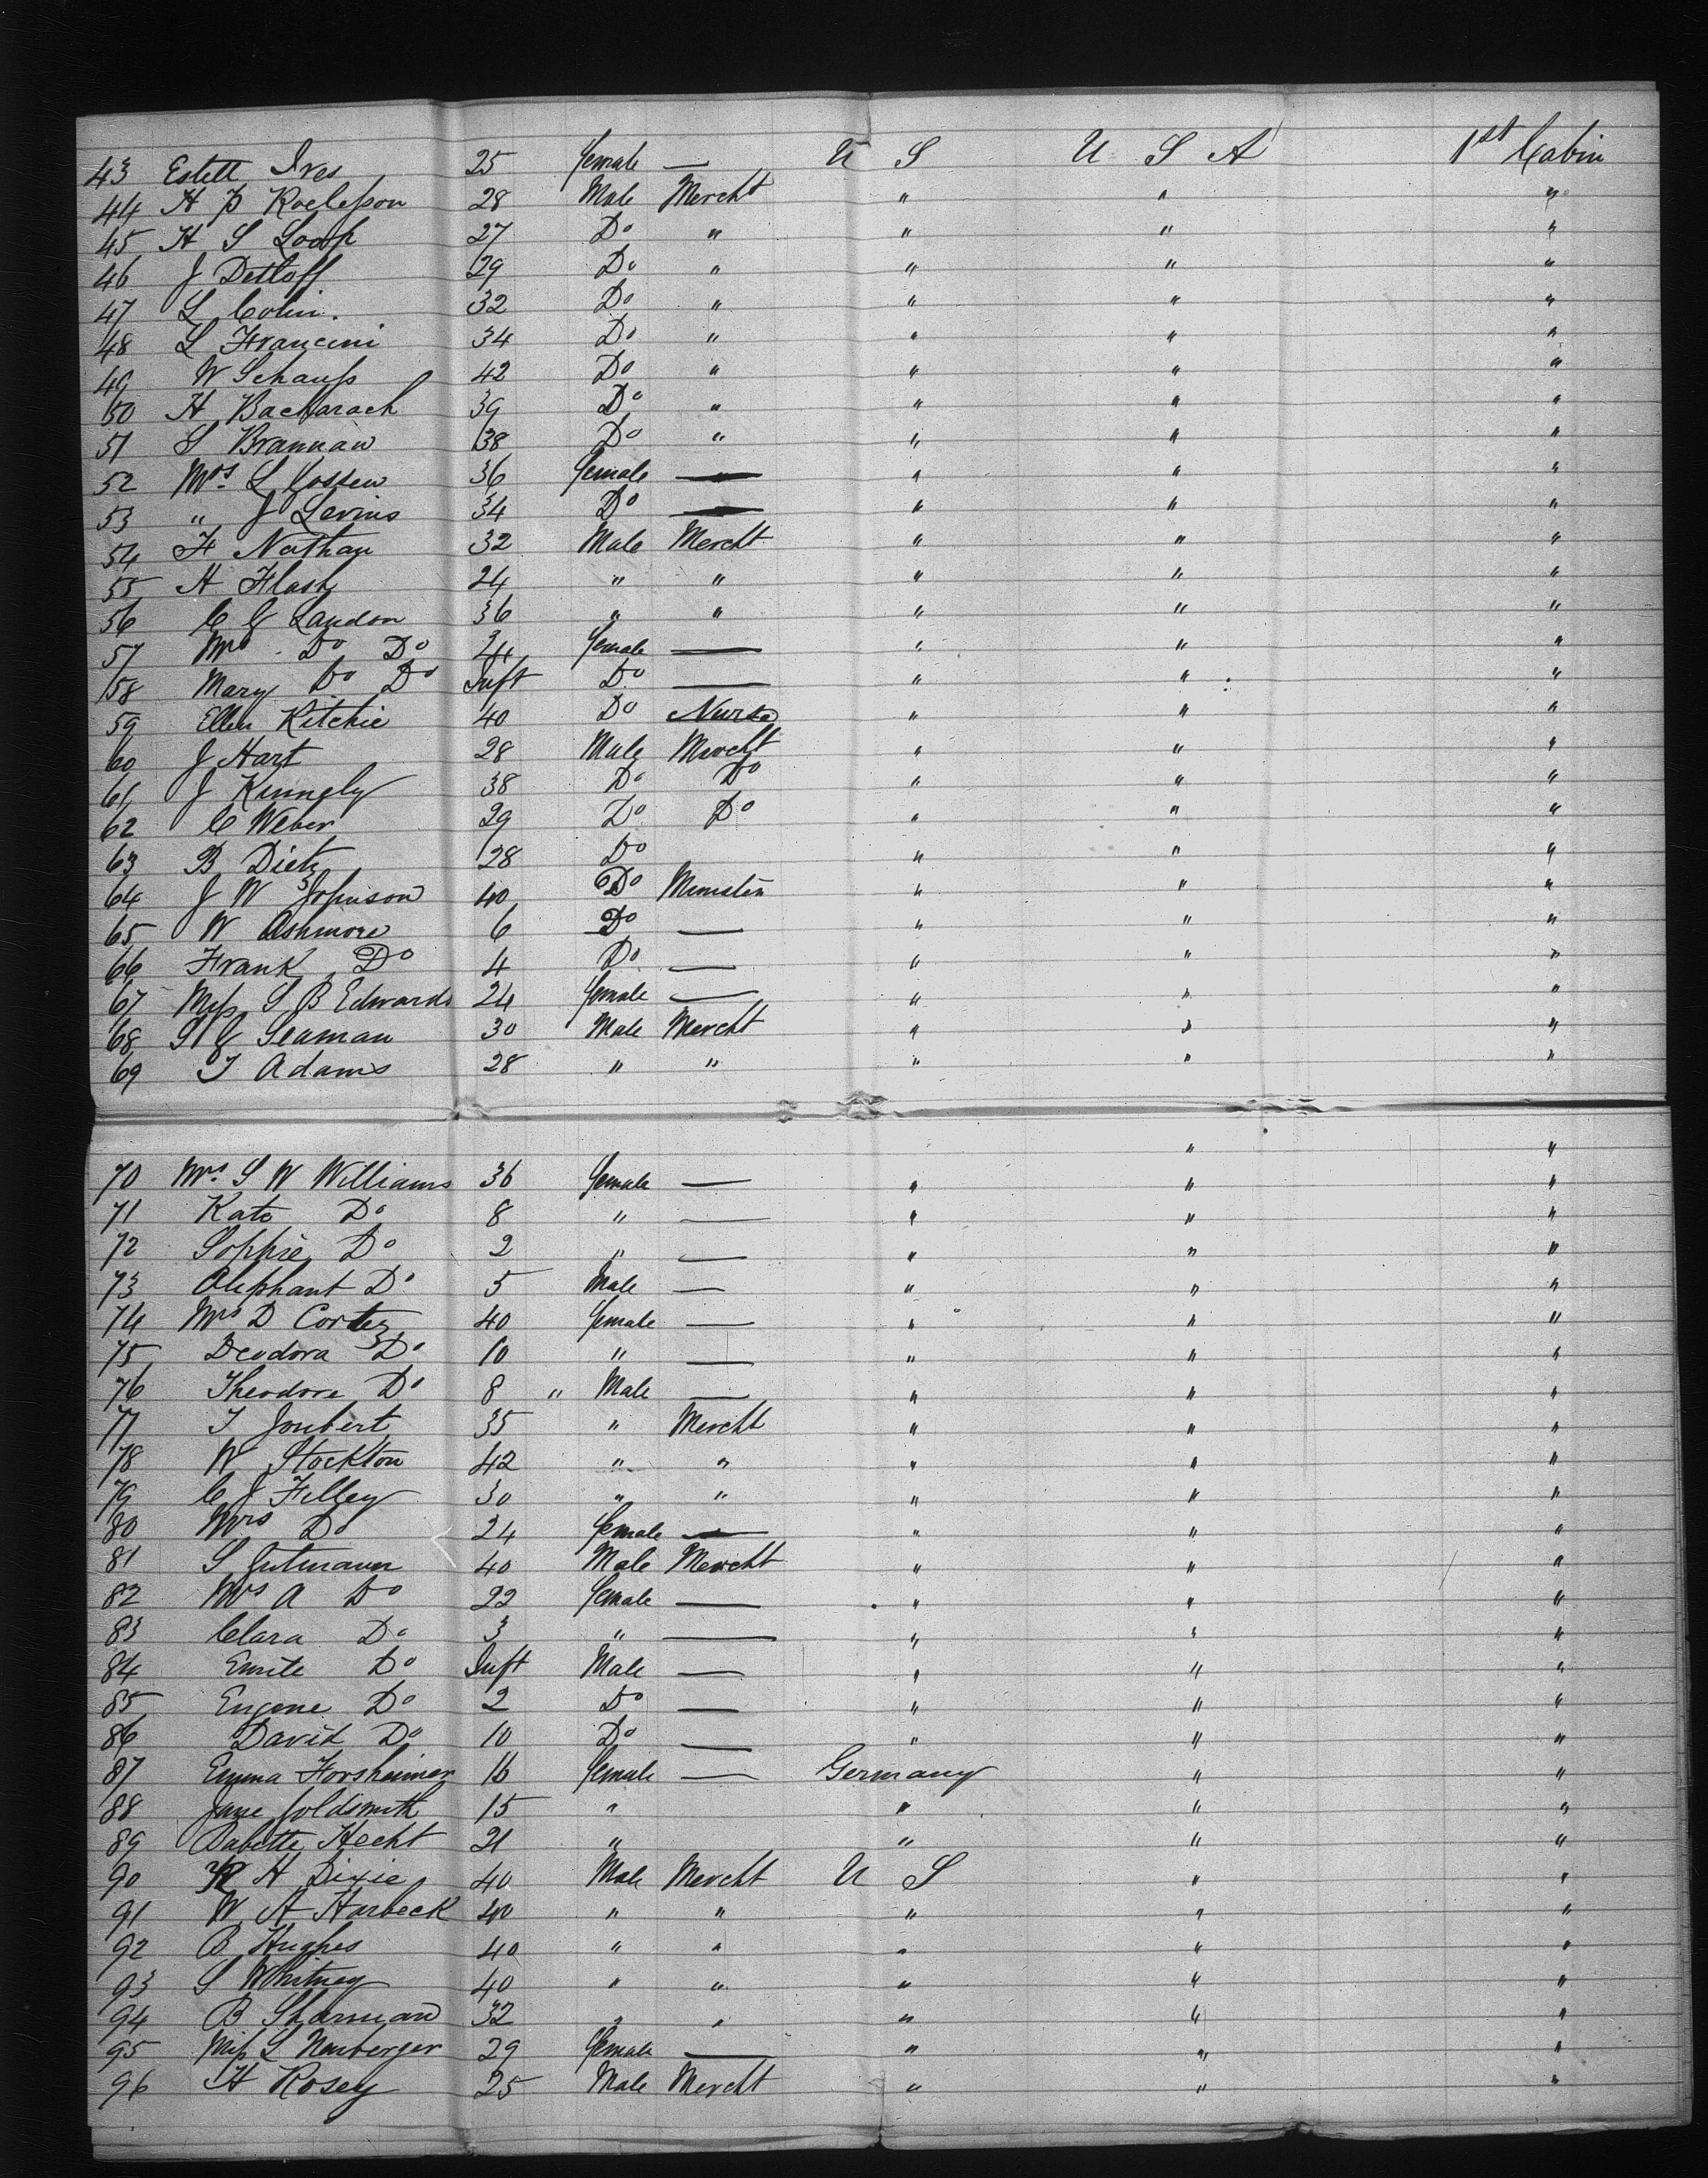 43 Estell Ives 25 female — U S U S A 1st Cabin
44 H B 28 Male Mercht " " "
45 H S Loop 27 Do " " " "
46 J Detloff 29 Do " " " "
47 L Colin. 32 Do " " " "
48 L Francini 34 Do " " " "
49 W Schauss 42 Do " " " "
50 H Bacharach 39 Do " " " "
51 S Brannan 38 Do " " " "
52 Mrs. L 36 female — " " "
53 " J Levins 34 Do — " " "
54 F Nathan 32 Male Mercht " " "
55 H Flash 24 " " " " "
56 C G Landon 36 " " " " "
57 Mrs Do Do 24 female — " " "
58 Mary Do Do Inft Do — " " "
59 Ellen Ritchie 40 Do Nurse " " "
60 J Hart 28 Male Mercht " " "
61 J 38 Do Do " " "
62 C Weber 29 Do Do " " "
63 B Dietz 28 Do " " "
64 J W Johnson 40 Do Minister " " "
65 W Ashmore 6 Do — " " "
66 Frank Do 4 Do — " " "
67 Miss S B Edwards 24 female — " " "
68 S G Seaman 30 Male Mercht " " "
69 T Adams 28 " " " " "
" "
70 Mrs. S W Williams 36 female — " " "
71 Kate Do 8 " — " " "
72 Sophie Do 2 " — " " "
73 Oliphant Do 5 Male — " " "
74 Mrs D Cortez 40 female — " " "
75 Deodora Do 10 " — " " "
76 Theodore Do 8 " Male — " " "
77 T Joubert 35 " Mercht " " "
78 W Stockton 42 " " " " "
79 C J Filley 30 " " " " "
80 Mrs Do 24 female — " " "
81 S Gutmann 40 Male Mercht " " "
82 Mrs A Do 22 female — " " "
83 Clara Do 3 " — " " "
84 Emile Do Inft Male — " " "
85 Eugene Do 2 Do — " " "
86 David Do 10 Do — " " "
87 Emma Forsheimer 16 female — Germany " "
88 Jane Goldsmith 15 " " " "
89 Babette Hecht 21 " " " "
90 H Dixie 40 Male Mercht U S " "
91 W A Harbeck 40 " " " " "
92 B Hughes 40 " " " " "
93 S Whitney 40 " " " " "
94 B Sharman 32 " " " " "
95 Miss L Newberger 29 female — " " "
96 H Rosey 25 Male Mercht " " "